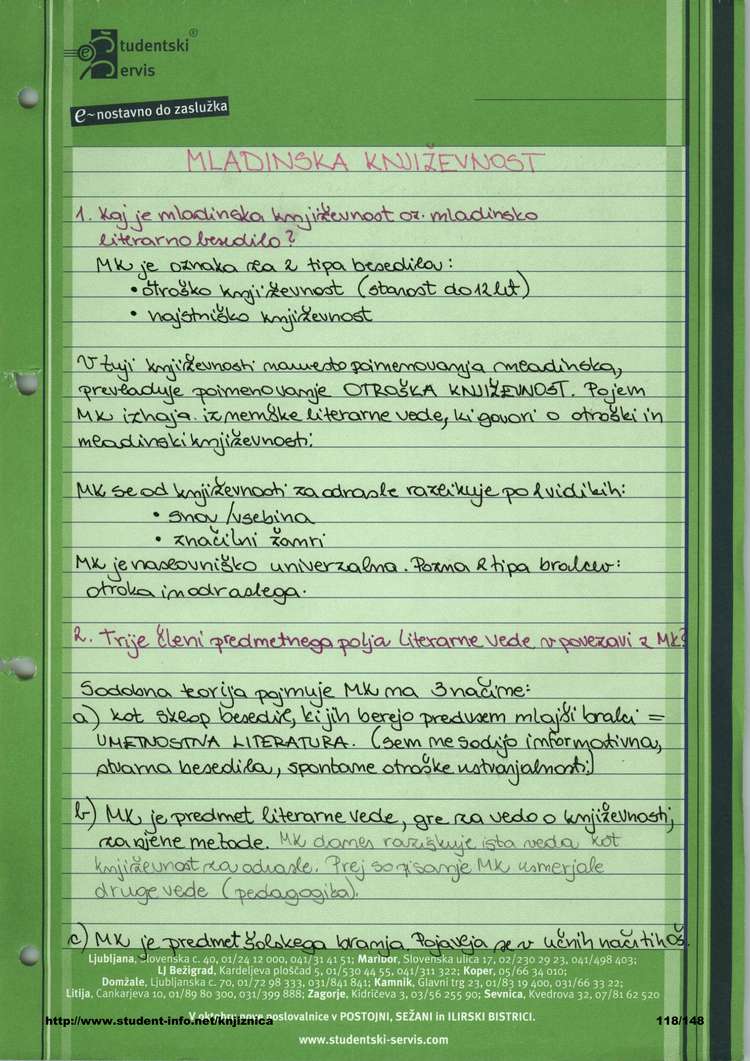 Študentski®
Servis
e~nostavno do zaslužka
MLADINSKA KNJIŽEVNOST
1. Kaj je mladinska književnost oz. mladinsko
literarno besedilo?
MK je oznaka za 2 tipa besedilu:
• otroško književnost (starost do 12 let)
• najstniško književnost
V tuji književnosti namesto poimenovanja mladinska,
prevladuje poimenovanje OTROŠKA KNJIŽEVNOST. Pojem
MK izhaja iz nemške literarne vede, ki govori o otroški in
mladinski književnosti.
MK se od književnosti za odrasle razlikuje po 2 vidikih:
• snov/vsebina
• značilni žanri
MK je naslovniško univerzalna. Pozna 2 tipa bralcev:
otroka in odraslega.
2. Trije členi predmetnega polja literarne vede v povezavi z MK?
Sodobna teorija pojmuje MK na 3 načine:
a) kot sklop besedil, ki jih berejo predvsem mlajši bralci =
UMETNOSTNA LITERATURA. (sem ne sodijo informativna,
stvarna besedila, spontane otroške ustvarjalnosti)
b) MK je predmet literarne vede, gre za vedo o književnosti,
za njene metode. MK danes raziskuje ista veda kot
književnost za odrasle. Prej so pisanje MK usmerjale
druge vede (pedagogika).
c) MK je predmet šolskega branja. Pojavlja se v učnih načrtih OŠ.
Ljubljana, Slovenska c. 40, 01/24 12 000, 041/31 41 51; Maribor, Slovenska ulica 17, 02/230 29 23, 041/498 403;
LJ Bežigrad, Kardeljeva ploščad 5, 01/530 44 55, 041/311 322; Koper, 05/66 34 010;
Domžale, Ljubljanska c. 70, 01/72 98 333, 031/841 841; Kamnik, Glavni trg 23, 01/83 19 400, 031/66 33 22;
Litija, Cankarjeva 10, 01/89 80 300, 031/399 888; Zagorje, Kidričeva 3, 03/56 255 90; Sevnica, Kvedrova 32, 07/81 62 520
V oktobru nove poslovalnice v POSTOJNI, SEŽANI in ILIRSKI BISTRICI.
http://www.student-info.net/knjiznica
118/148
www.studentski-servis.com